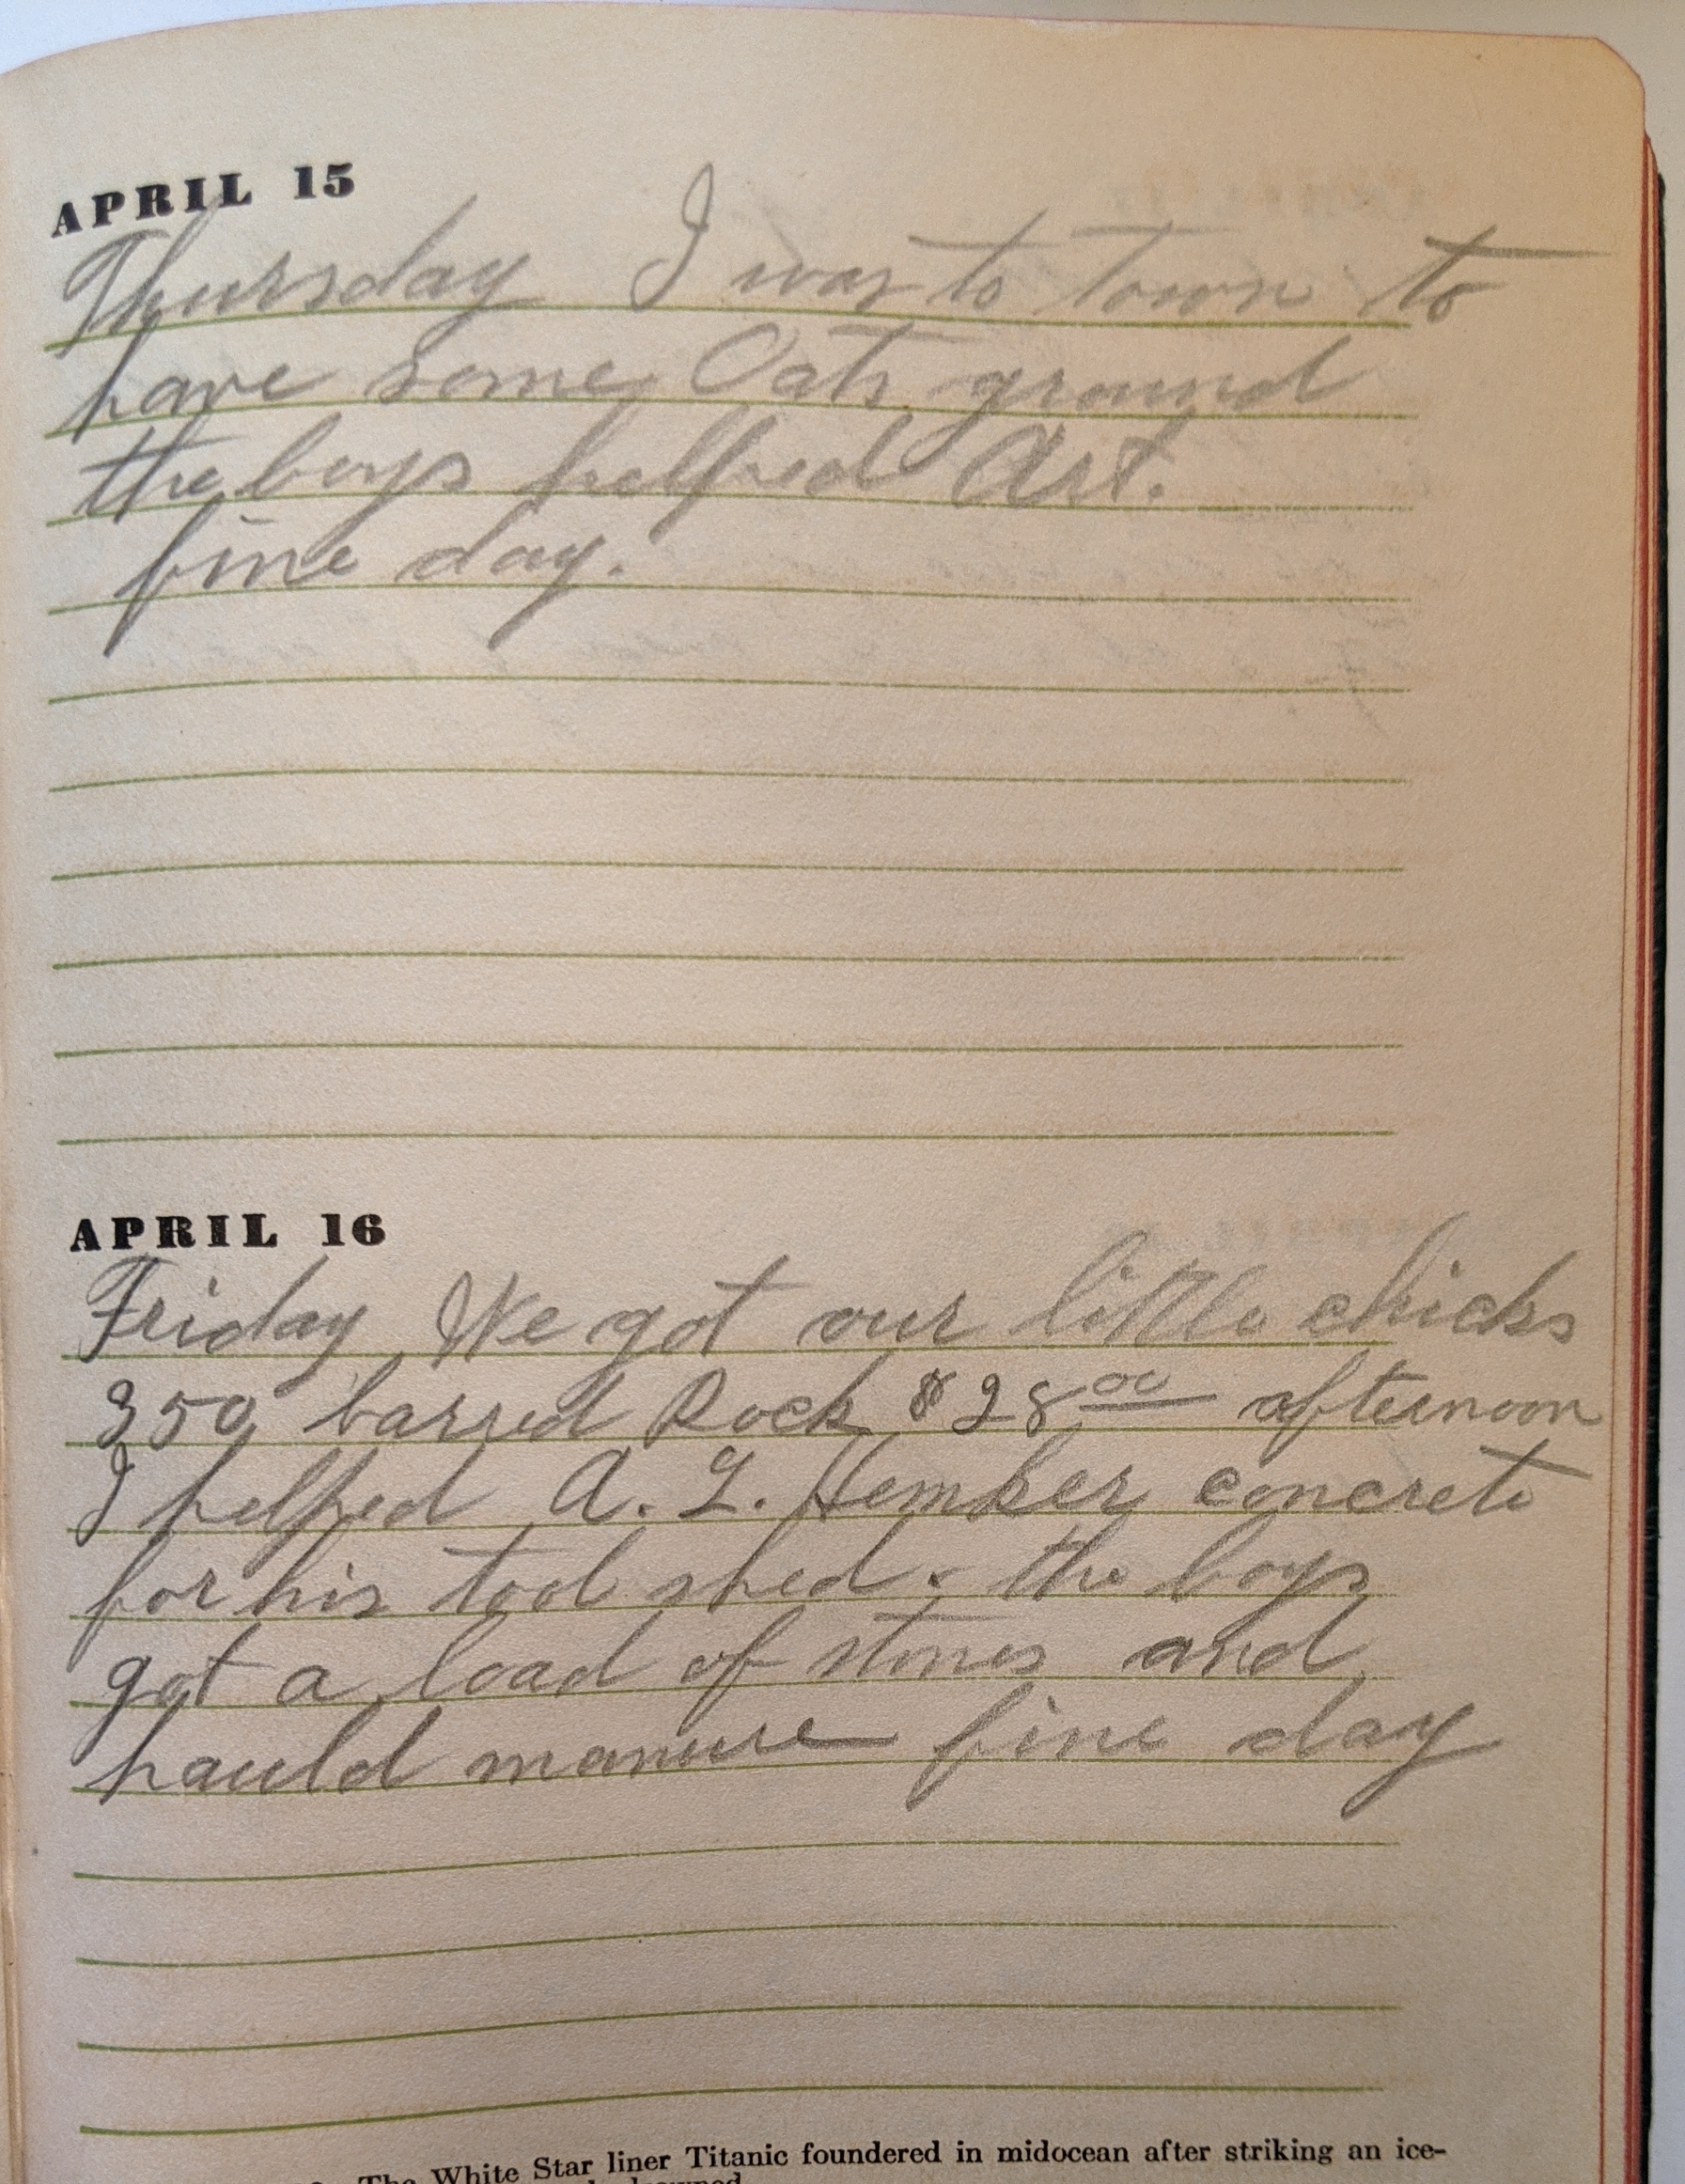 APRIL 15
Thursday I was to town to
have some Oats ground
the boys helped Art.
fine day.
APRIL 16
Friday We got our little chicks
350 barred Rock $28.00 afternoon
I helped A. L. Hemker concrete
for his tool shed. the boys
got a load of stones and
hauld manure fine day
The White Star liner Titanic foundered in midocean after striking an ice-
drowned